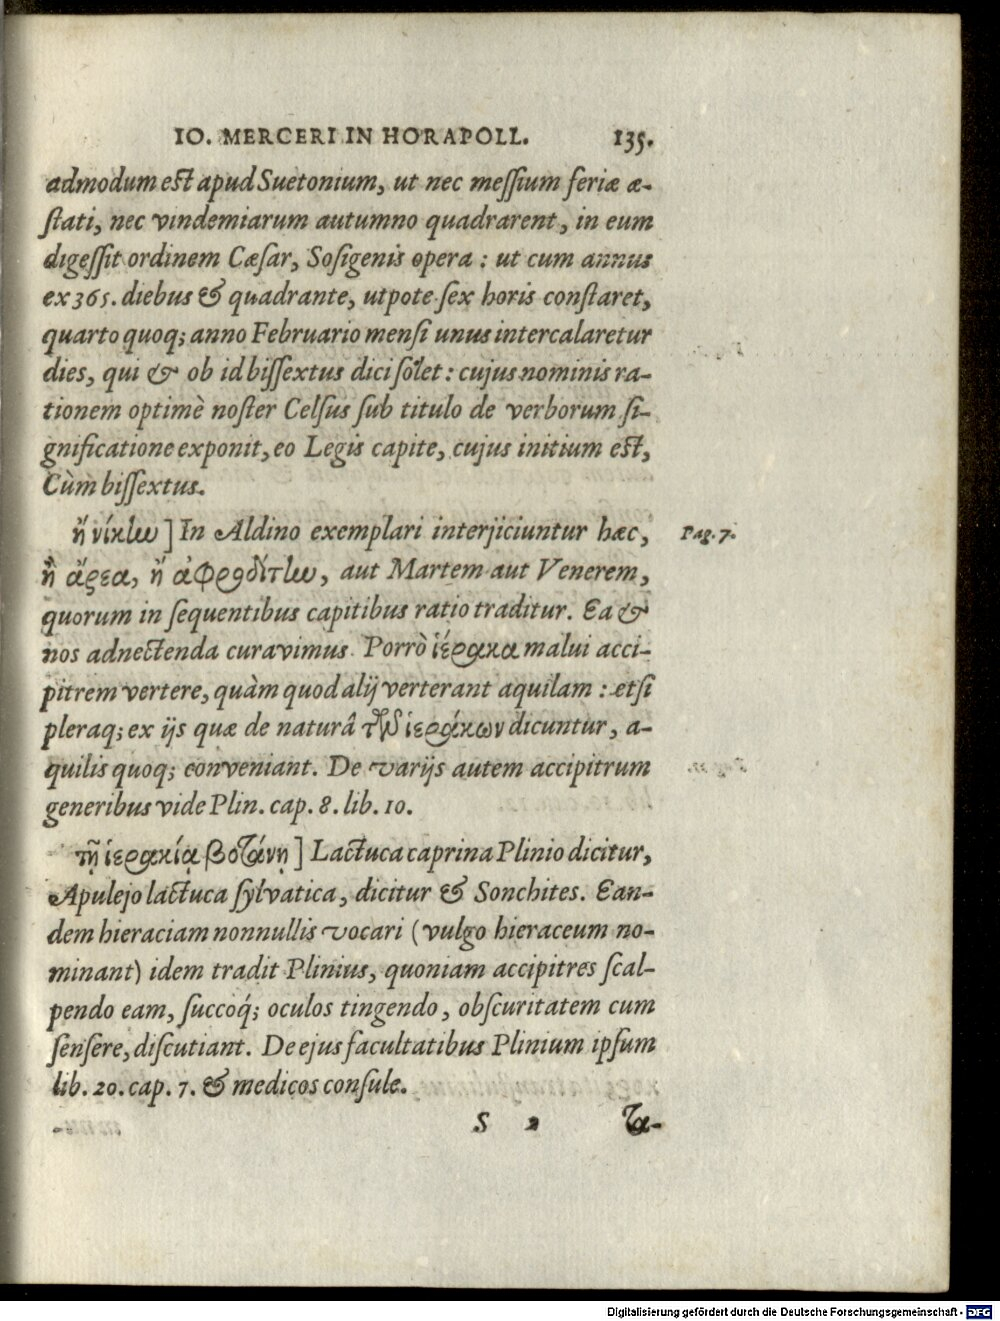 IO. MERCERI IN HORAPOLL. 135.
admodum est apud Suetonium, ut nec meſſium feriæ æ-
ſtati, nec vindemiarum autumno quadrarent, in eum
digeſſit ordinem Cæſar, Soſigenis opera : ut cum annus
ex 365. diebus & quadrante, utpote ſex horis conſtaret,
quarto quoq; anno Februario menſi unus intercalaretur
dies, qui & ob id biſſextus dici ſolet : cujus nominis ra-
tionem optimè noſter Celſus ſub titulo de verborum ſi-
gnificatione exponit, eo Legis capite, cujus initium est,
Cùm biſſextus.
ἢ νίκην ] In Aldino exemplari interjiciuntur hæc,
Pag. 7.
ἢ ἄρεα, ἢ ἀφροδίτην, aut Martem aut Venerem,
quorum in ſequentibus capitibus ratio traditur. Ea &
nos adnectenda curavimus. Porrò ἱέρακα malui acci-
pitrem vertere, quàm quod alij verterant aquilam : etſi
pleraq; ex ijs quæ de naturâ τῶν ἱεράκων dicuntur, a-
quilis quoq; conveniant. De varijs autem accipitrum
generibus vide Plin. cap. 8. lib. 10.
τῇ ἱερακίᾳ βοτάνῃ ] Lactuca caprina Plinio dicitur,
Apulejo lactuca ſylvatica, dicitur & Sonchites. Ean-
dem hieraciam nonnullis vocari ( vulgo hieraceum no-
minant) idem tradit Plinius, quoniam accipitres ſcal-
pendo eam, ſuccoq́; oculos tingendo, obſcuritatem cum
ſenſere, diſcutiant. De ejus facultatibus Plinium ipſum
lib. 20. cap. 7. & medicos conſule.
S 2 τα-
Digitalisierung gefördert durch die Deutsche Forschungsgemeinschaft - DFG